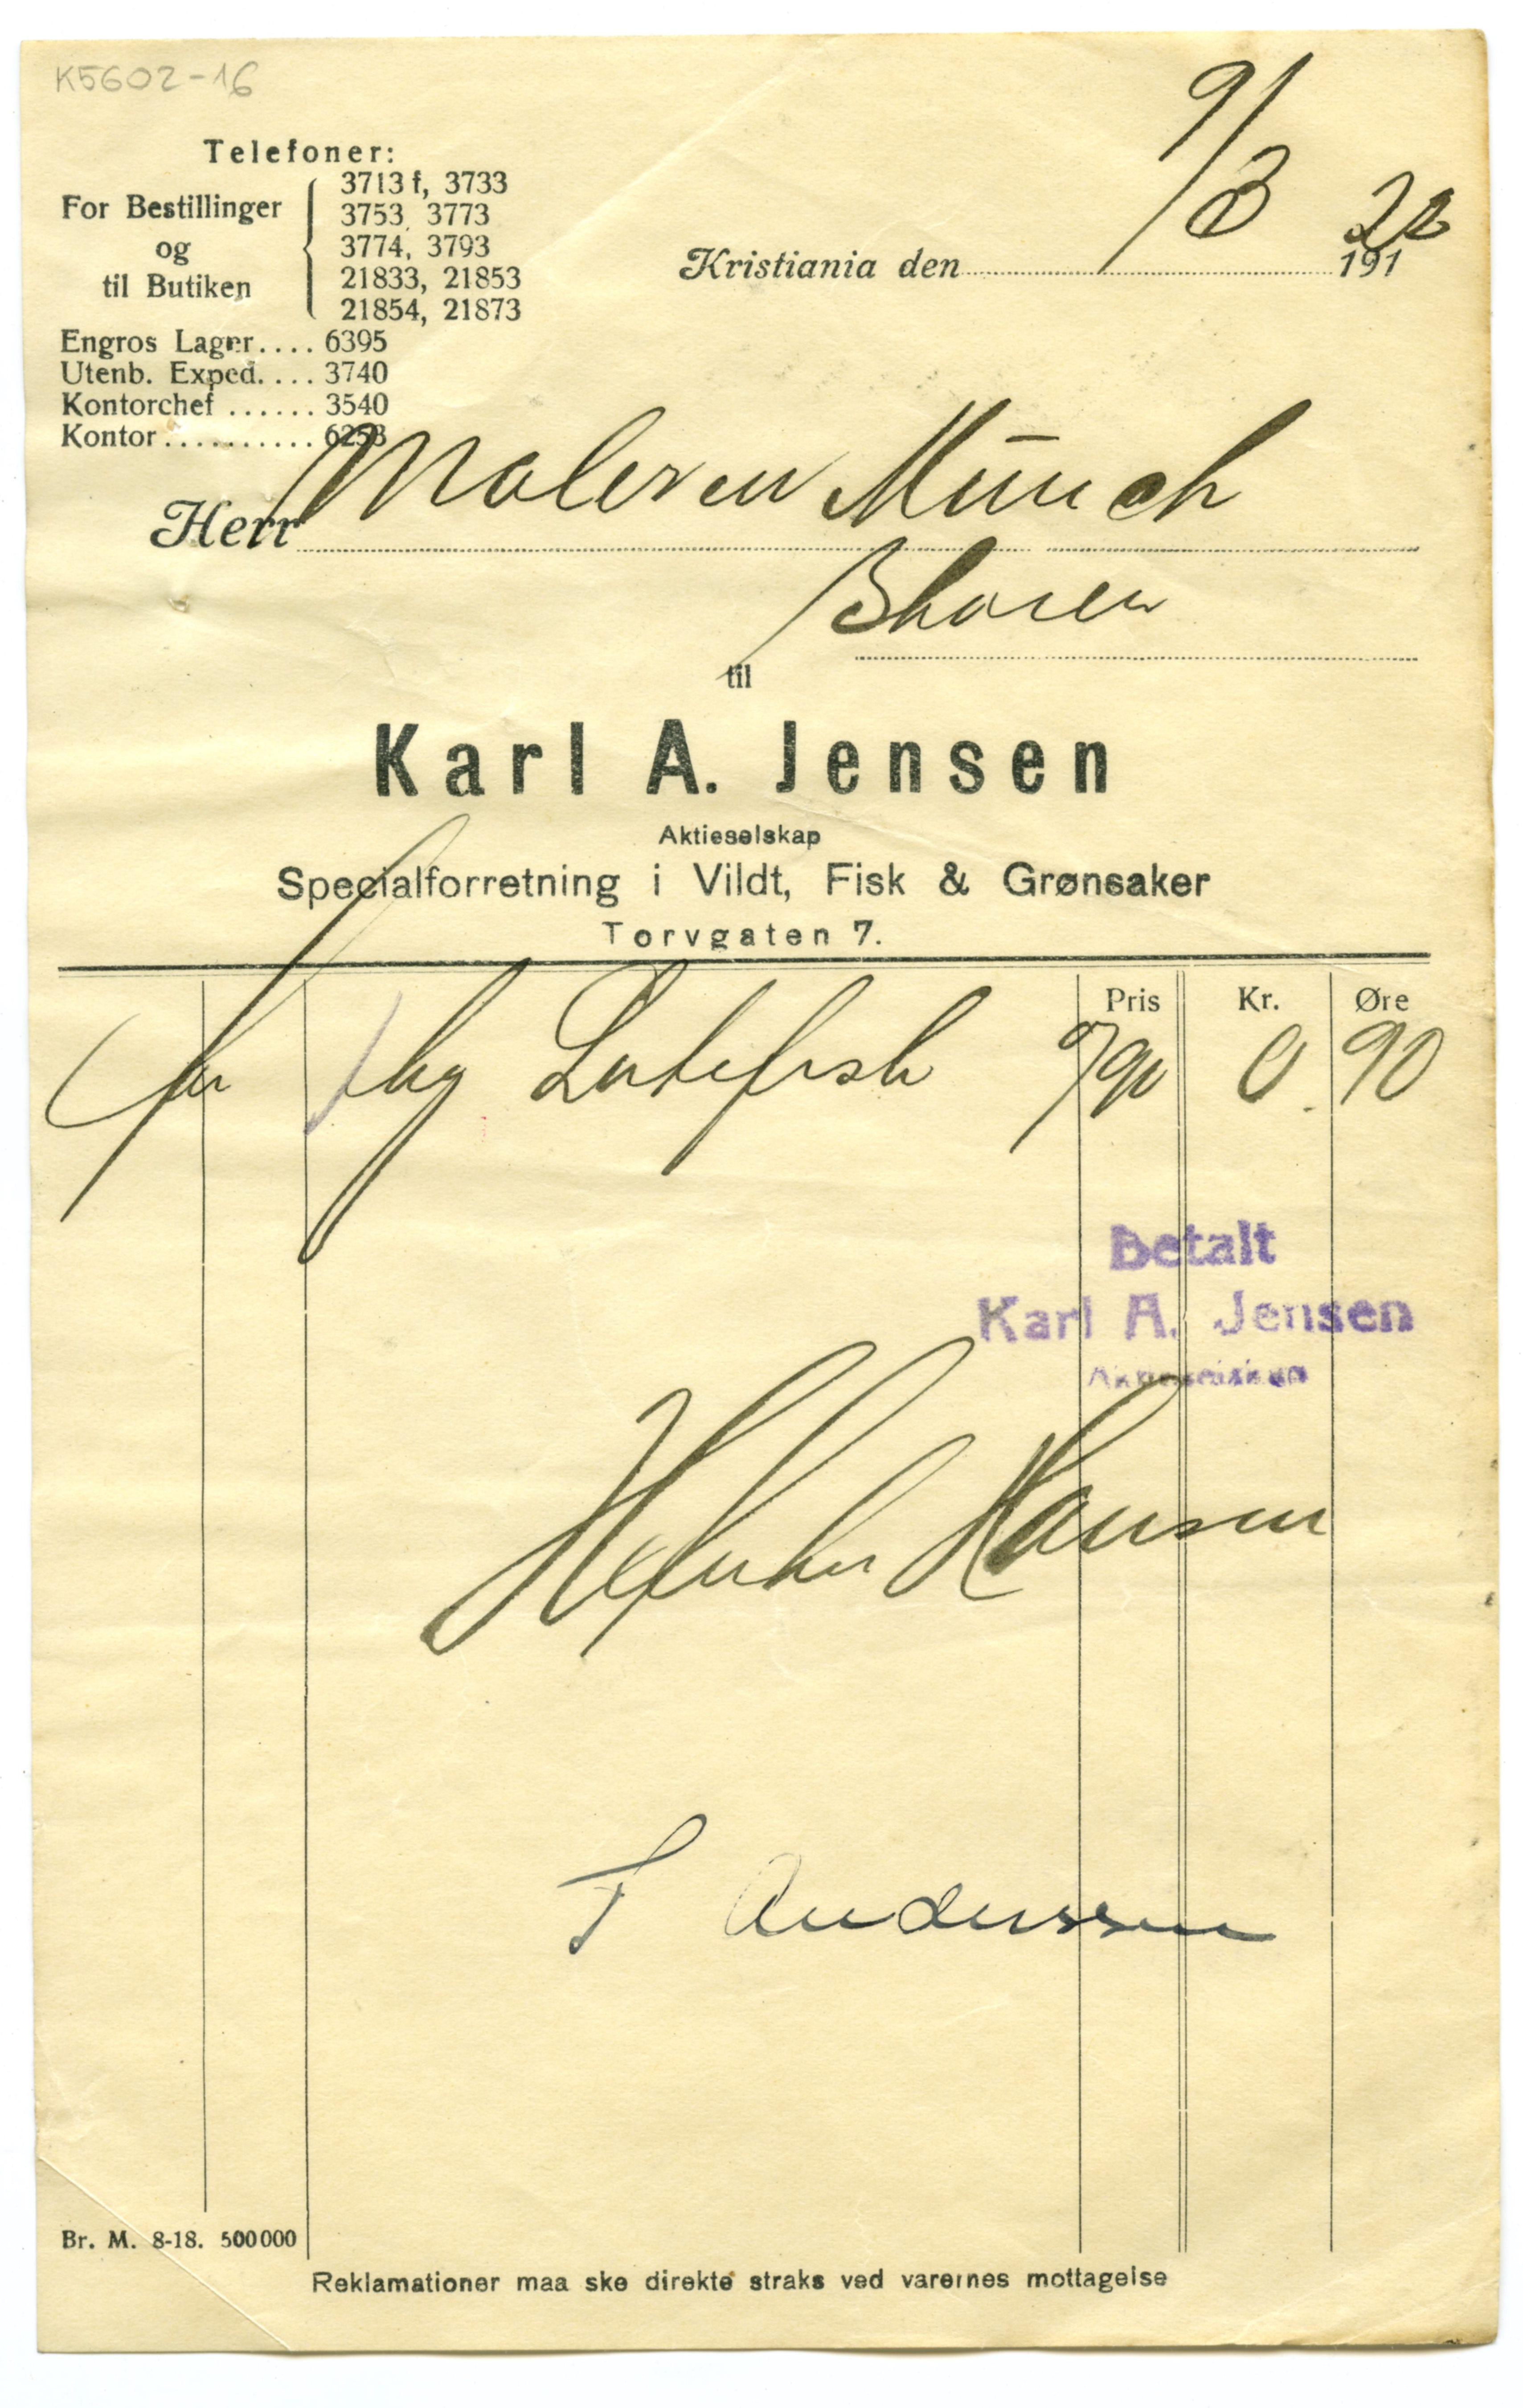 K5602-16
Telefoner:
For Bestillinger
og
til Butiken
3713 f, 3733
3753, 3773
3774, 3793
21833, 21853
21854, 21873
Engros Lager.... 6395
Utenb. Exped. ... 3740
Kontorchef ...... 3540
Kontor .......... 6253
9/3 22
Kristiania den 191
Herr Maleren Münch
Skøien
til
Karl A. Jensen
Aktieselskap
Specialforretning i Vildt, Fisk & Grønsaker
Torvgaten 7.
Pris Kr. Øre
1 kg Lutefisk /90 0.90
Betalt
Karl A. Jensen
Aktieselskap
Hansen
F Anderssen
Br. M. 8-18. 500000
Reklamationer maa ske direkte straks ved varernes mottagelse